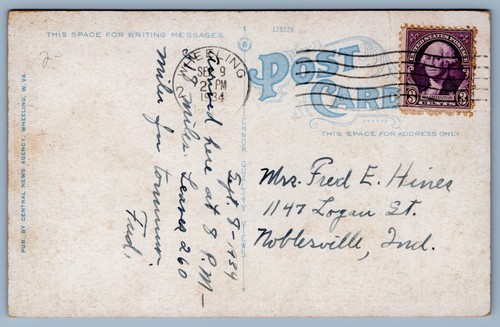 THIS SPACE FOR WRITING MESSAGES
124226
WHEELING
SEP 9
2 PM
1934
W.VA.
POST
CARD
THIS SPACE FOR ADDRESS ONLY
UNITED STATES POSTAGE
3 CENTS 3
PUB. BY CENTRAL NEWS AGENCY, WHEELING, W. VA.
Sept 8-1934
Arrived here at 8 P.M-
miles. Leaves 260
miles for tomorrow
Fred.
Mrs. Fred E. Hines
1147 Logan St.
Noblesville, Ind.